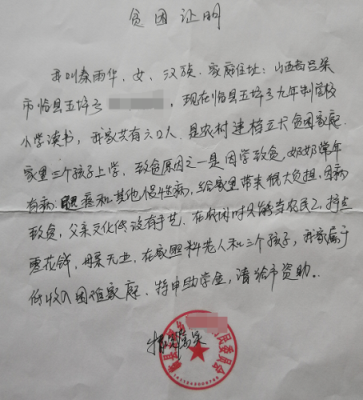 贫困证明
我叫秦雨华,女、汉族.家庭住址:山西省吕梁
市临县五坪乡,现在临县五坪乡九年制学校
小学读书,我家共有六口人,是农村建档立卡贫困家庭.
家里三个孩子上学,致贫原因之一是因学致贫,奶奶常年
有病:腿疼和其他慢性病,给家里带来很大负担,因病
致贫,父亲文化低没有手艺.在农闲时只能当农民工,挣点
零花钱,母亲无业,在家照料老人和三个孩子,我家属于
低收入困难家庭.特申助学金,请给予资助..
情况属实
民委员会